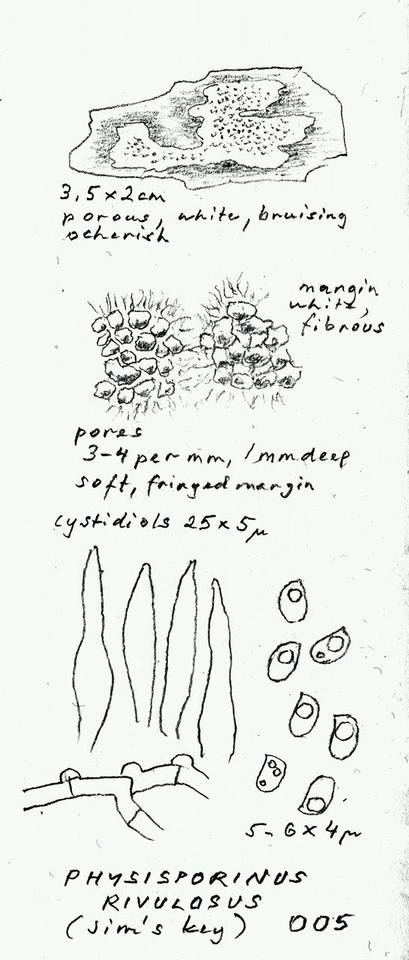 3,5 x 2cm
porous, white, bruising
ocherish
margin
white,
fibrous
pores
3-4 per mm, 1mm deep
soft, fringed margin
cystidiols 25 x 5µ
5-6 x 4µ
PHYSISPORINUS
RIVULOSUS
(Jim's key) 005